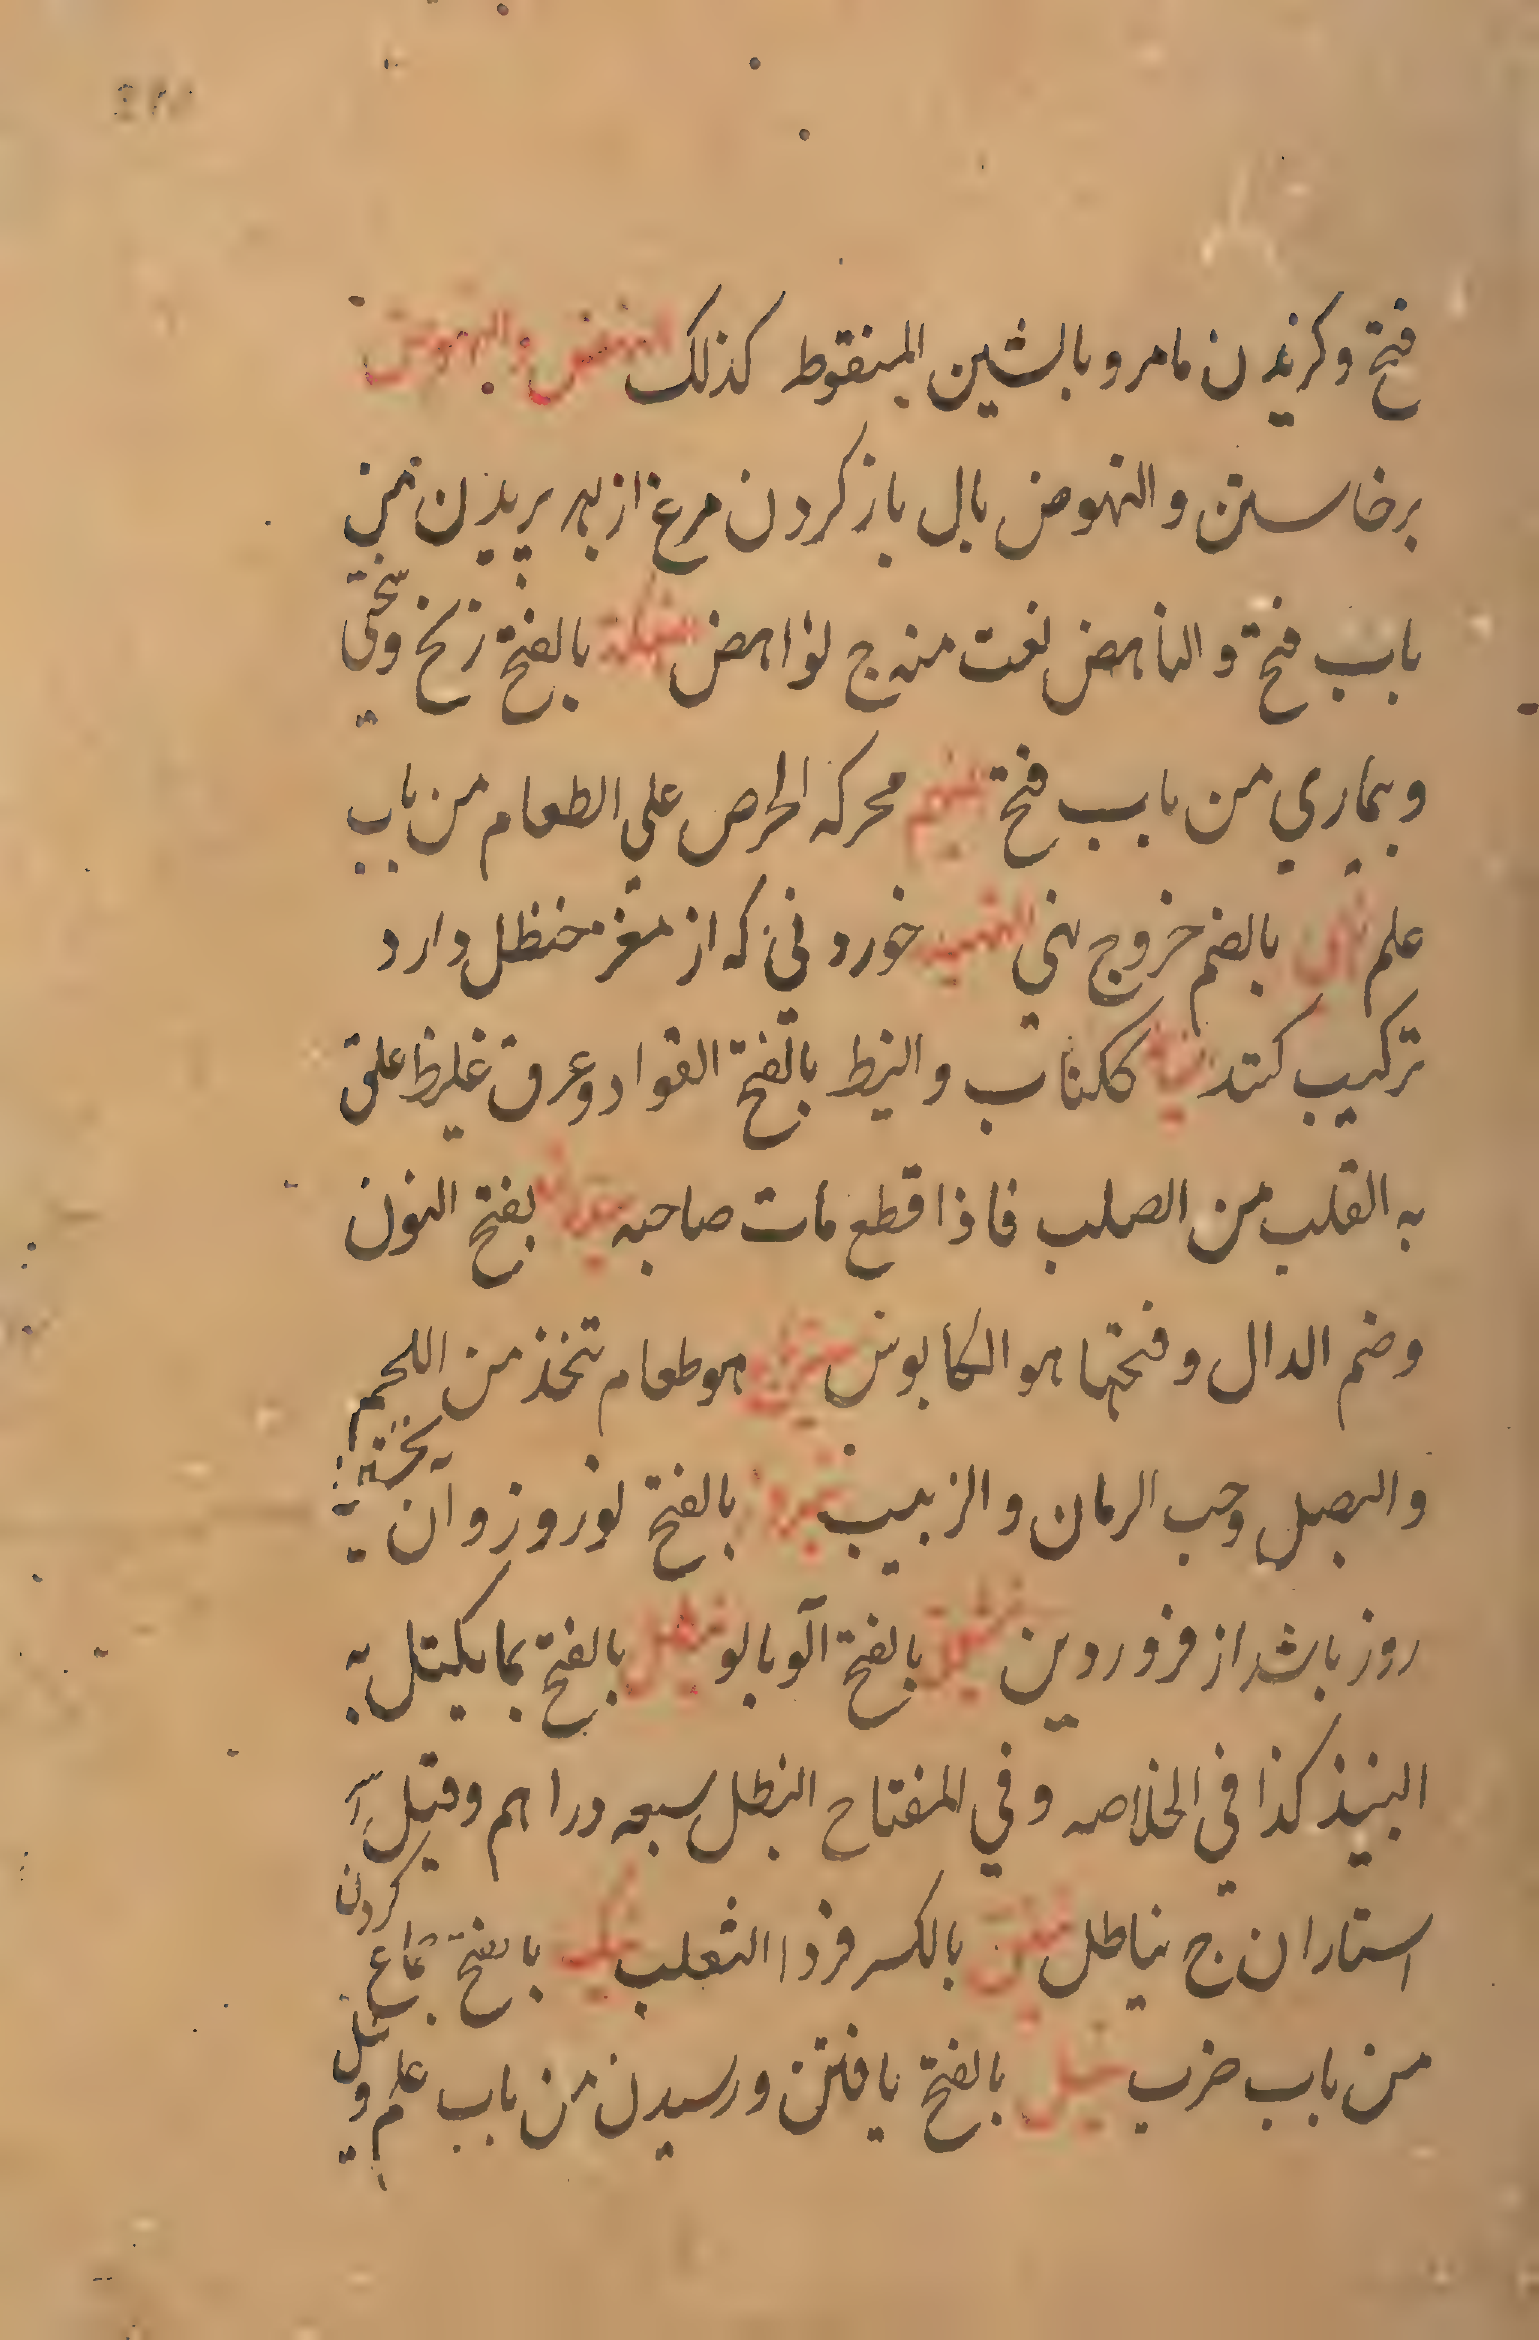 فتح وکزیدن مامر وبالشین المنقوط کذلک النهض والنهوض
برخاستن والنهوض بال باز کردن مرغ از بهر پریدن من
باب فتح والناهض نعت منه ج نواهض نهکة بالفتح رنج وسختی
وبیماری من باب فتح نهم محرکه الحرص علی الطعام من باب
علم بالضم خروج نی خوردنی که از مغز حنظل دارد
ترکیب کنند نیاط ککتاب والنیط بالفتح الفواد وعرق غلیظ علق
به القلب من الصلب فاذا قطع مات صاحبه نیدلان بفتح النون
وضم الدال وفتحها هو الکابوس هو طعام تتخذ من اللحم
والبصل وحب الرمان والزبیب نیروز بالفتح نوروز وآن نخستین
روز باشد از فروردین بالفتح آلوبالو نیطل بالفتح بما یکتل به
النبیذ کذا فی الخلاصه وفی المفتاح النطل سبعه دراهم وقیل
استاران ج نیاطل بالکسر فرد الثعلب نیک بالفتح جماع کردن
من باب ضرب نیل بالفتح یافتن ورسیدن من باب علم ونیل